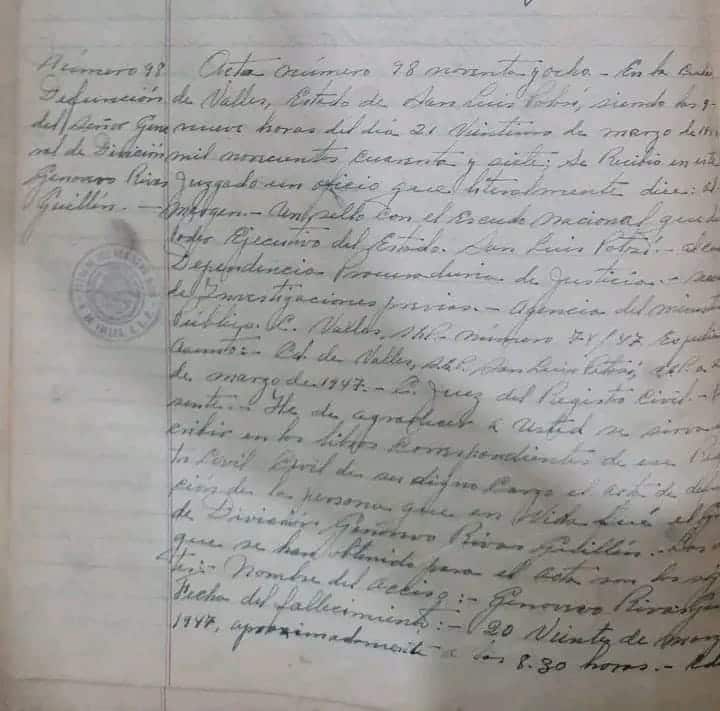 Número 98
Defunción
del Señor Gene
ral de División
Genovevo Rivas
Guillén. —
Acta número 98 noventa y ocho. — En la Ciudad
de Valles, Estado de San Luis Potosí, siendo las 9-
nueve horas del día 21 Veintiuno de marzo de 19
mil novecientos cuarenta y siete; se Recibió en este
Juzgado un oficio que literalmente dice: Al
margen. — Un sello con el Escudo nacional que di
Poder Ejecutivo del Estado. San Luis Potosí. — al
Dependencia Procuraduria de Justicia. —
de Investigaciones previas. — Agencia del minist
Público. C. Valles, S.L.P. — número 74/47 Expedi
Asunto: — Cd. de Valles, S.L.P. San Luis Potosí, a
de marzo de 1947. — C. Juez del Registro Civil. —
sente. — He de agradecer a Usted se sirva
cribir en los libros correspondientes de ese
tro Civil Civil de su digno Cargo el acta de defun
ción de la persona que en Vida fué el G
de División Genovevo Rivas Guillén. — Los
que se han obtenido para el acta son los sig
tes: — Nombre del occiso: — Genovevo Rivas Gui
Fecha del fallecimiento: — 20 Veinte de marzo
1947, aproximadamente a las 8.30 horas. — Cd